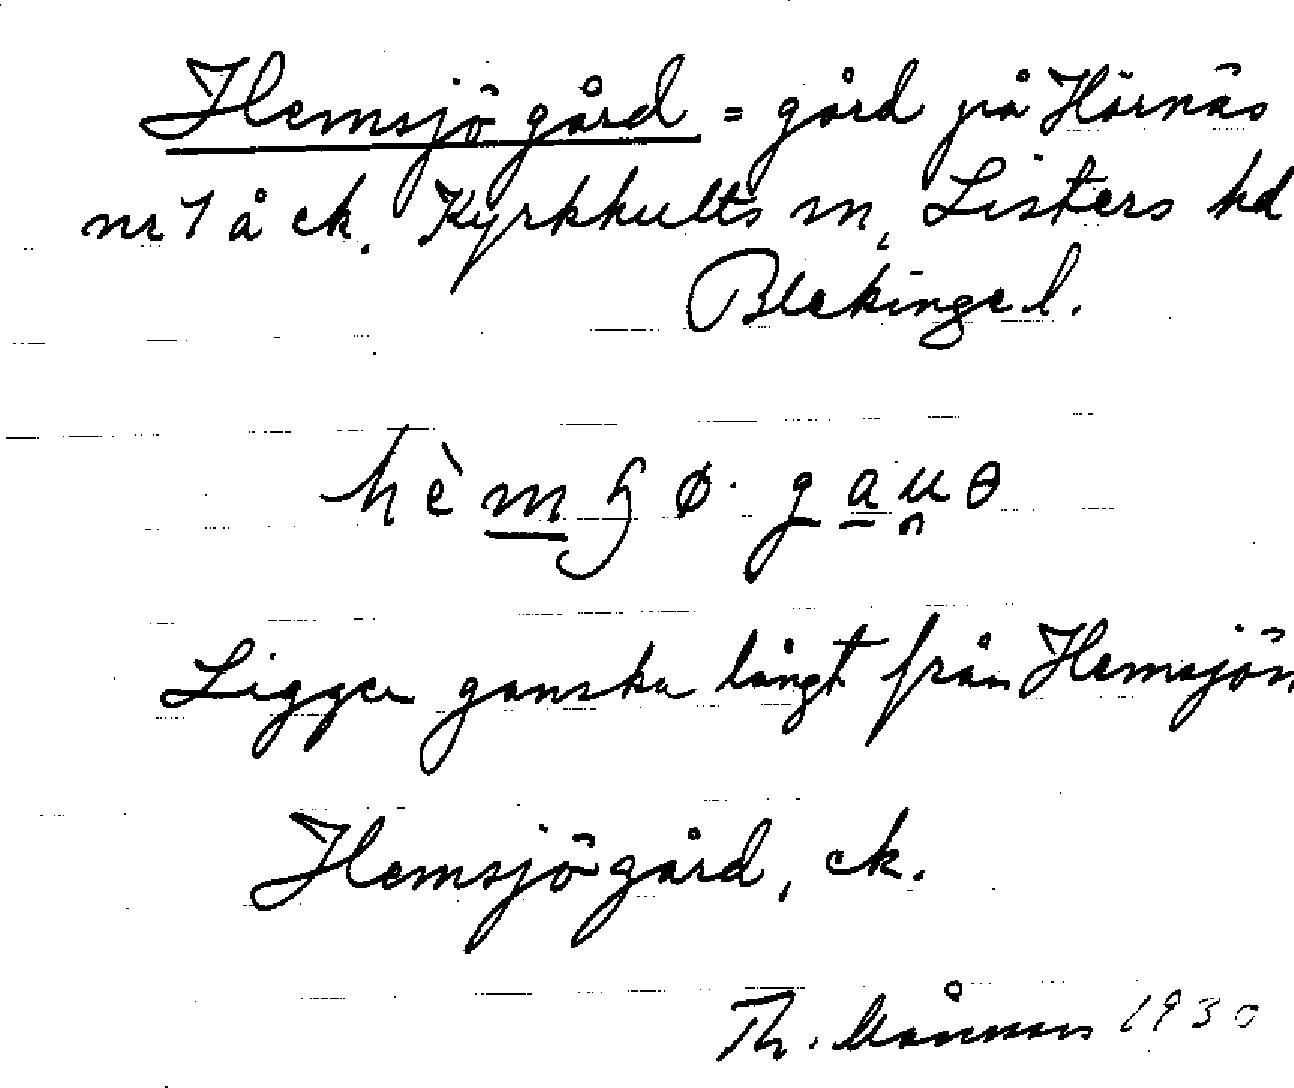 Hemsjö gård = gård på Härnäs
nr 1 å ek. Kyrkhults sn, Listers hd
Blekinge l.
hèmɧø· gauə
Ligger ganska långt från Hemsjön.
Hemsjögård, ek.
Th. 1930